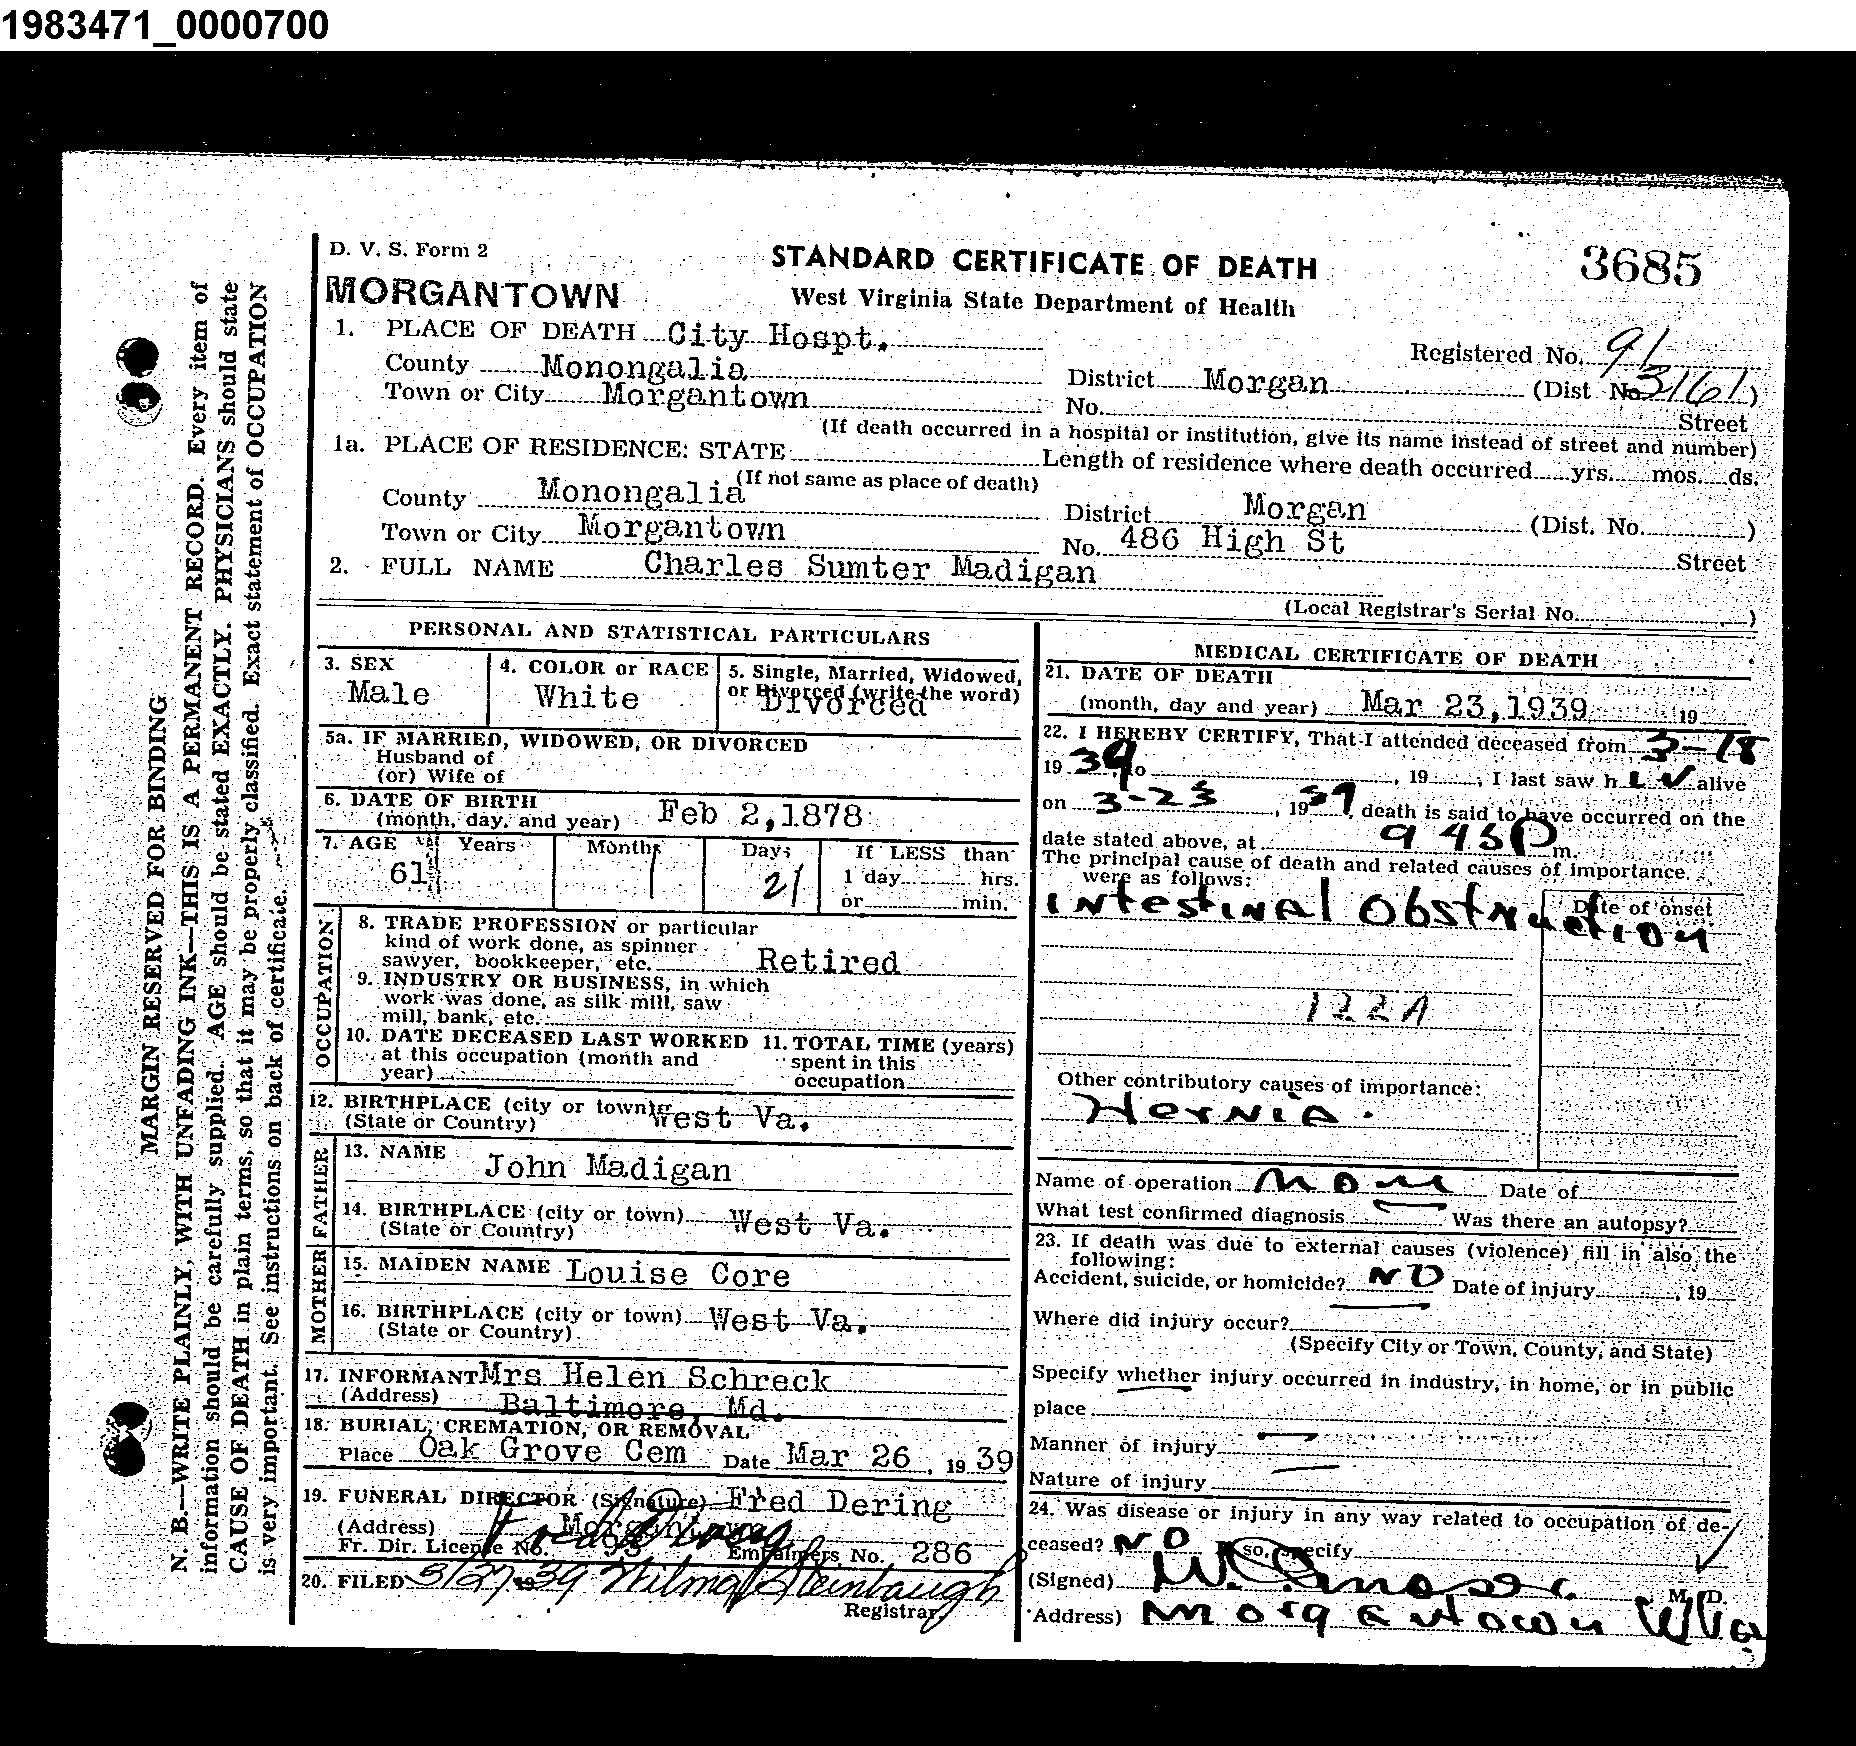 1983471_0000700
D. V. S. Form 2
STANDARD CERTIFICATE OF DEATH
3685
MORGANTOWN
West Virginia State Department of Health
1. PLACE OF DEATH City Hospt.
Registered No. 91
County Monongalia
District Morgan (Dist No. 3161)
Town or City Morgantown
No. Street
(If death occurred in a hospital or institution, give its name instead of street and number)
1a. PLACE OF RESIDENCE: STATE Length of residence where death occurred yrs. mos. ds.
(If not same as place of death)
County Monongalia
District Morgan (Dist. No. )
Town or City Morgantown
No. 486 High St Street
2. FULL NAME Charles Sumter Madigan
(Local Registrar's Serial No. )
PERSONAL AND STATISTICAL PARTICULARS
3. SEX
Male
4. COLOR or RACE
White
5. Single, Married, Widowed,
or Divorced (write the word)
Divorced
5a. IF MARRIED, WIDOWED, OR DIVORCED
Husband of
(or) Wife of
6. DATE OF BIRTH
(month, day, and year) Feb 2,1878
7. AGE Years Months Days If LESS than
61 1 21 1 day hrs.
or min.
OCCUPATION
8. TRADE PROFESSION or particular
kind of work done, as spinner
sawyer, bookkeeper, etc. Retired
9. INDUSTRY OR BUSINESS, in which
work was done, as silk mill, saw
mill, bank, etc.
10. DATE DECEASED LAST WORKED
at this occupation (month and
year)
11. TOTAL TIME (years)
spent in this
occupation
12. BIRTHPLACE (city or town)
(State or Country) West Va.
FATHER
13. NAME John Madigan
14. BIRTHPLACE (city or town) West Va.
(State or Country)
MOTHER
15. MAIDEN NAME Louise Core
16. BIRTHPLACE (city or town) West Va.
(State or Country)
17. INFORMANT Mrs Helen Schreck
(Address) Baltimore, Md.
18. BURIAL, CREMATION, OR REMOVAL
Place Oak Grove Cem Date Mar 26, 1939
19. FUNERAL DIRECTOR (Signature) Fred Dering
(Address) Morgantown
Fr. Dir. License No. Embalmers No. 286
20. FILED 3/27 1939 Wilma Steinbaugh
Registrar
MEDICAL CERTIFICATE OF DEATH
21. DATE OF DEATH
(month, day and year) Mar 23,1939 19
22. I HEREBY CERTIFY, That I attended deceased from 3-18
1939, to , 19 , I last saw h alive
on 3-23, 1939, death is said to have occurred on the
date stated above, at 9 45 P m.
The principal cause of death and related causes of importance
were as follows:
Date of onset
Intestinal Obstruction
122A
Other contributory causes of importance:
Hernia.
Name of operation none Date of
What test confirmed diagnosis Was there an autopsy?
23. If death was due to external causes (violence) fill in also the
following:
Accident, suicide, or homicide? NO Date of injury , 19
Where did injury occur?
(Specify City or Town, County, and State)
Specify whether injury occurred in industry, in home, or in public
place
Manner of injury
Nature of injury
24. Was disease or injury in any way related to occupation of de-
ceased? NO If so, specify
(Signed) M. D.
Address) Morgantown W Va
MARGIN RESERVED FOR BINDING
N. B.—WRITE PLAINLY, WITH UNFADING INK—THIS IS A PERMANENT RECORD. Every item of
information should be carefully supplied. AGE should be stated EXACTLY. PHYSICIANS should state
CAUSE OF DEATH in plain terms, so that it may be properly classified. Exact statement of OCCUPATION
is very important. See instructions on back of certificate.